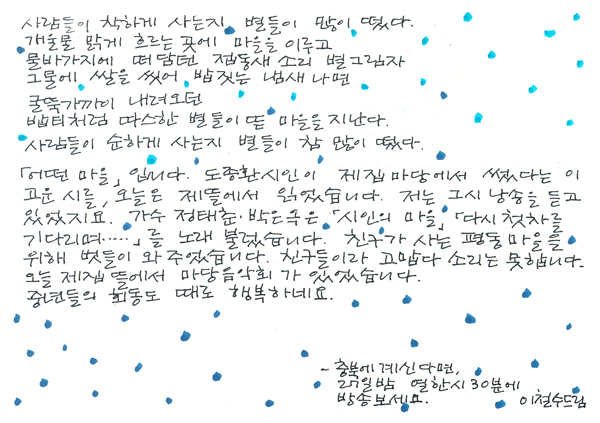 사람들이 착하게 사는지 별들이 많이 떴다.
개울물 맑게 흐르는 곳에 마을을 이루고
물바가지에 떠 담던 접동새 소리 별그림자
그물에 쌀을 씻어 밥짓는 냄새 나면
굴뚝가까이 내려오던
밥티처럼 따스한 별들이 뜯 마을을 지난다.
사람들이 순하게 사는지 별들이 참 많이 떴다.
「어떤 마을」입니다. 도종환시인이 제집마당에서 썼다는 이
고운 시를, 오늘은 제뜰에서 읽었습니다. 저는 그시 낭송을 듣고
있었지요. 가수 정태춘·박은옥은 「시인의 마을」「다시 첫차를
기다리며·····」를 노래 불렀습니다. 친구가 사는 평동마을을
위해 벗들이 와 주었습니다. 친구들이라 고맙다 소리는 못합니다.
오늘 제집 뜰에서 마당음악회가 있었습니다.
중년들의 회동도 때로 행복하네요.
~충북에 계신다면,
27일밤 열한시 30분에
방송보세요. 이철수드림